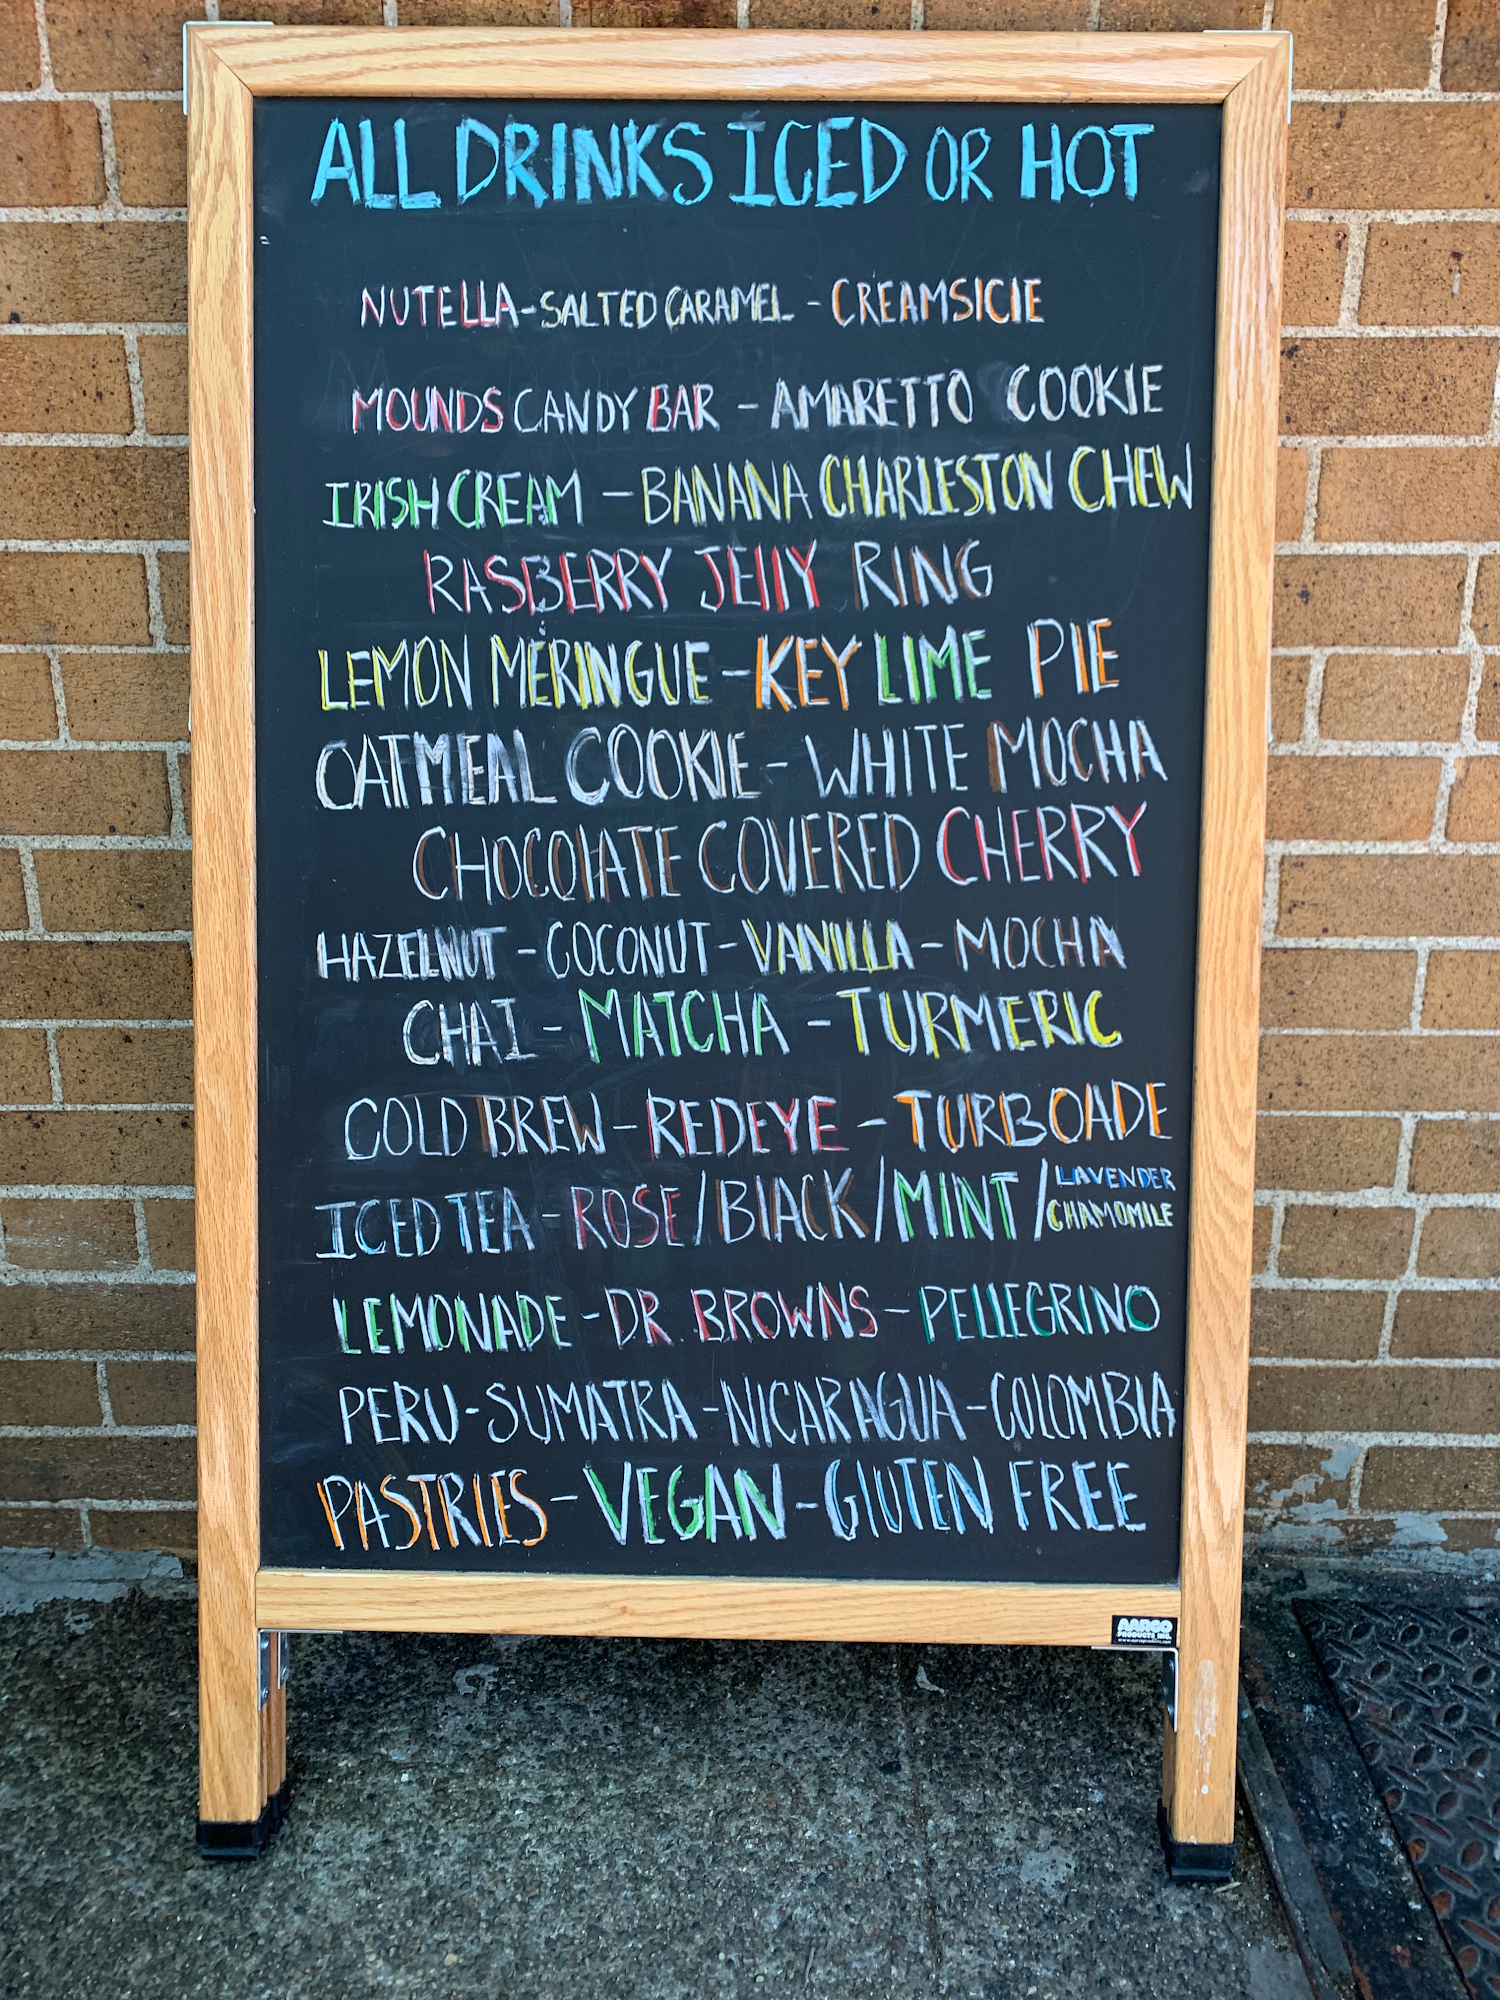 ALL DRINKS ICED OR HOT
NUTELLA - SALTED CARAMEL - CREAMSICIE
MOUNDS CANDY BAR - AMARETTO COOKIE
IRISH CREAM - BANANA CHARLESTON CHEW
RASBERRY JELLY RING
LEMON MERINGUE - KEY LIME PIE
OATMEAL COOKIE - WHITE MOCHA
CHOCOLATE COVERED CHERRY
HAZELNUT - COCONUT - VANILLA - MOCHA
CHAI - MATCHA - TURMERIC
COLD BREW - REDEYE - TURBOADE
ICED TEA - ROSE / BLACK / MINT / LAVENDER
CHAMOMILE
LEMONADE - DR. BROWNS - PELLEGRINO
PERU - SUMATRA - NICARAGUA - COLOMBIA
PASTRIES - VEGAN - GLUTEN FREE
AARCO
PRODUCTS, INC.